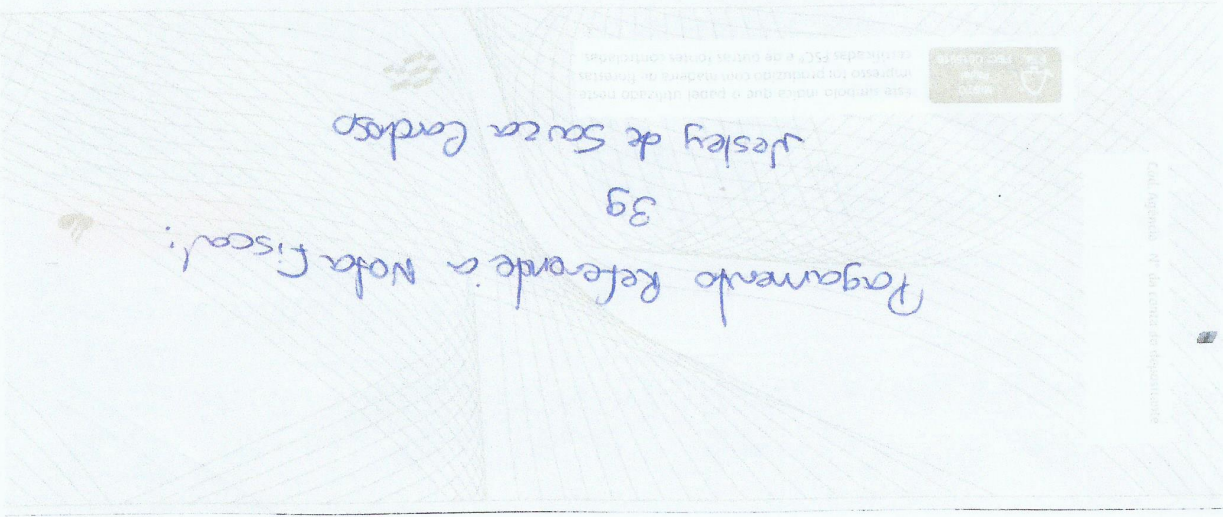 Pagamento Referente a Nota Fiscal:
39
Wesley de Souza Cardoso
Este símbolo indica que o papel utilizado neste
impresso foi produzido com madeira de florestas
certificadas FSC® e de outras fontes controladas.
MISTO
Cód. agência Nº da conta do depositante